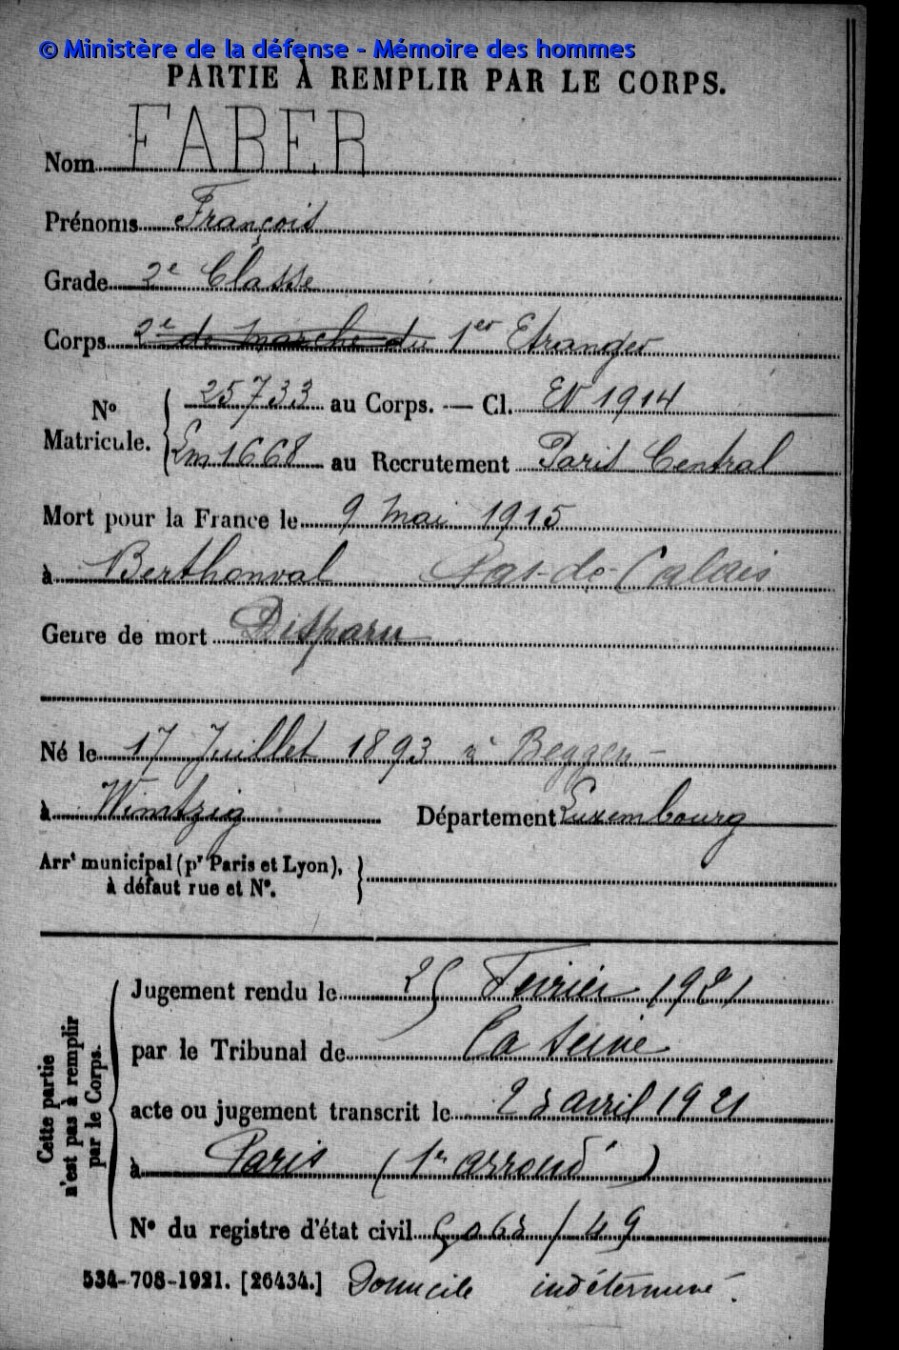 © Ministère de la défense - Mémoire des hommes
PARTIE À REMPLIR PAR LE CORPS.
Nom FABER
Prénoms François
Grade 2e Classe
Corps 2e de marche du 1er Etranger
No Matricule. 25733 au Corps. — Cl. EV 1914
Em 1668 au Recrutement Paris Central
Mort pour la France le 9 mai 1915
à Berthonval Pas-de-Calais
Genre de mort Disparu
Né le 17 Juillet 1893 à Beggen -
à Wimtzig Département Luxembourg
Arrt municipal (pr Paris et Lyon),
à défaut rue et No.
Cette partie
n'est pas à remplir
par le Corps.
Jugement rendu le 25 Fevrier 1921
par le Tribunal de La Seine
acte ou jugement transcrit le avril 1921
à Paris (1er arrond)
No du registre d'état civil / 49
534-708-1921. [26434.] Domicile indéterminé.